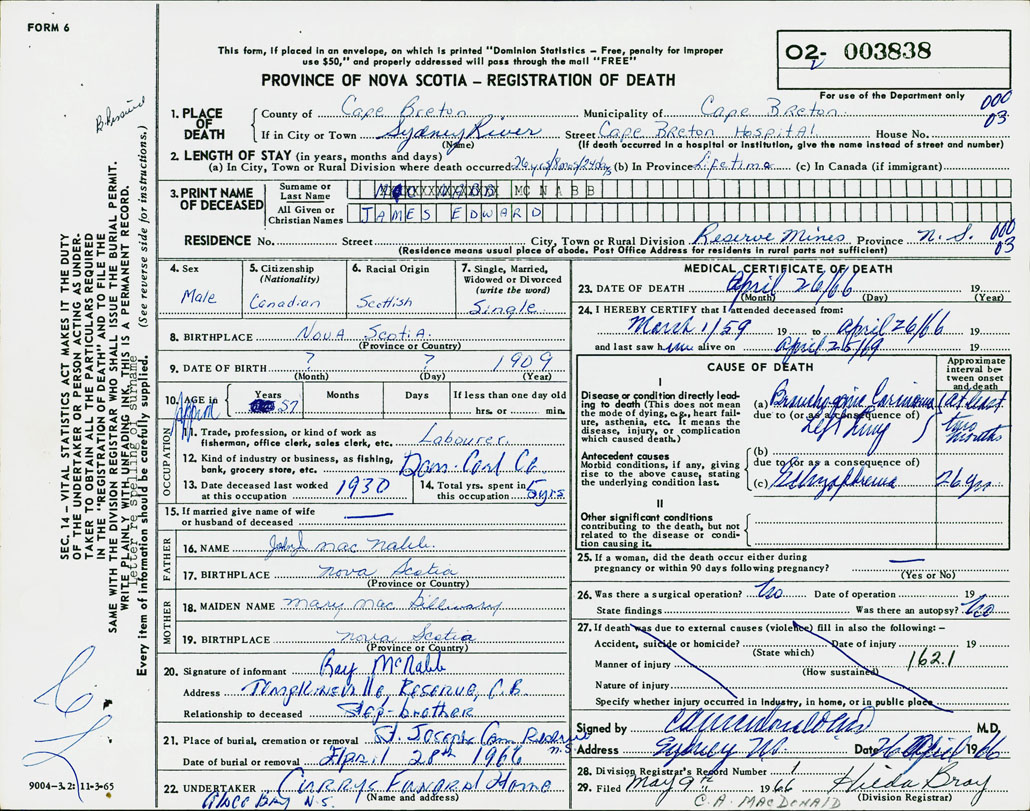 FORM 6
This form, if placed in an envelope, on which is printed "Dominion Statistics – Free, penalty for improper
use $50," and properly addressed will pass through the mail "FREE"
PROVINCE OF NOVA SCOTIA – REGISTRATION OF DEATH
02- 003838
For use of the Department only
000
03
1. PLACE OF DEATH
County of Cape Breton Municipality of Cape Breton
If in City or Town Sydney River Street Cape Breton Hospital House No.
(Name) (If death occurred in a hospital or institution, give the name instead of street and number)
2. LENGTH OF STAY (in years, months and days)
(a) In City, Town or Rural Division where death occurred 26 yrs/8mos/24dys (b) In Province Lifetime (c) In Canada (if immigrant)
3. PRINT NAME OF DECEASED
Surname or Last Name MC NABB
All Given or Christian Names JAMES EDWARD
RESIDENCE No. Street City, Town or Rural Division Reserve Mines Province N.S.
(Residence means usual place of abode. Post Office Address for residents in rural parts not sufficient)
000
03
4. Sex Male
5. Citizenship (Nationality) Canadian
6. Racial Origin Scottish
7. Single, Married, Widowed or Divorced (write the word) Single
8. BIRTHPLACE Nova Scotia
(Province or Country)
9. DATE OF BIRTH ? ? 1909
(Month) (Day) (Year)
10. AGE in Years 57 Months Days If less than one day old hrs. or min.
OCCUPATION
11. Trade, profession, or kind of work as fisherman, office clerk, sales clerk, etc. Labourer
12. Kind of industry or business, as fishing, bank, grocery store, etc. Dom. Coal Co
13. Date deceased last worked at this occupation 1930
14. Total yrs. spent in this occupation 5 yrs
15. If married give name of wife or husband of deceased
FATHER
16. NAME John J. Mac Nabb
17. BIRTHPLACE Nova Scotia
(Province or Country)
MOTHER
18. MAIDEN NAME Mary Mac Gillivary
19. BIRTHPLACE Nova Scotia
(Province or Country)
20. Signature of informant Ray McNabb
Address Tompkinsville, Reserve, C.B.
Relationship to deceased Step-brother
21. Place of burial, cremation or removal St. Josephs Cem Reserve N.S.
Date of burial or removal April 28th 1966
22. UNDERTAKER Curry's Funeral Home
Glace Bay N.S. (Name and address)
MEDICAL CERTIFICATE OF DEATH
23. DATE OF DEATH April 26/66 19
(Month) (Day) (Year)
24. I HEREBY CERTIFY that I attended deceased from:
March 1/59 19 to April 26/66 19
and last saw him alive on April 25/69 19
CAUSE OF DEATH
Approximate interval between onset and death
I
Disease or condition directly leading to death (This does not mean the mode of dying, e.g., heart failure, asthenia, etc. It means the disease, injury, or complication which caused death.)
(a) Bronchogenic Carcinoma
due to (or as a consequence of)
Left Lung
at least two months
Antecedent causes
Morbid conditions, if any, giving rise to the above cause, stating the underlying condition last.
(b)
due to (or as a consequence of)
(c) Schizophrenia 26 yrs
II
Other significant conditions
contributing to the death, but not related to the disease or condition causing it.
25. If a woman, did the death occur either during pregnancy or within 90 days following pregnancy?
(Yes or No)
26. Was there a surgical operation? No Date of operation 19
State findings Was there an autopsy? No
27. If death was due to external causes (violence) fill in also the following: –
Accident, suicide or homicide? Date of injury 19
(State which)
Manner of injury 162.1
(How sustained)
Nature of injury
Specify whether injury occurred in industry, in home, or in public place
Signed by M.D.
Address Sydney Date 26 April 1966
28. Division Registrar's Record Number 1
29. Filed May 9th 1966 Hilda Bray
(Division Registrar)
C.A. MACDONALD
SEC. 14 – VITAL STATISTICS ACT MAKES IT THE DUTY
OF THE UNDERTAKER OR PERSON ACTING AS UNDER-
TAKER TO OBTAIN ALL THE PARTICULARS REQUIRED
IN THE "REGISTRATION OF DEATH" AND TO FILE THE
SAME WITH THE DIVISION REGISTRAR WHO SHALL ISSUE THE BURIAL PERMIT.
WRITE PLAINLY WITH UNFADING INK. THIS IS A PERMANENT RECORD.
letter re spelling of surname
Every item of information should be carefully supplied. (See reverse side for instructions.)
9004-3.2: 11-3-65